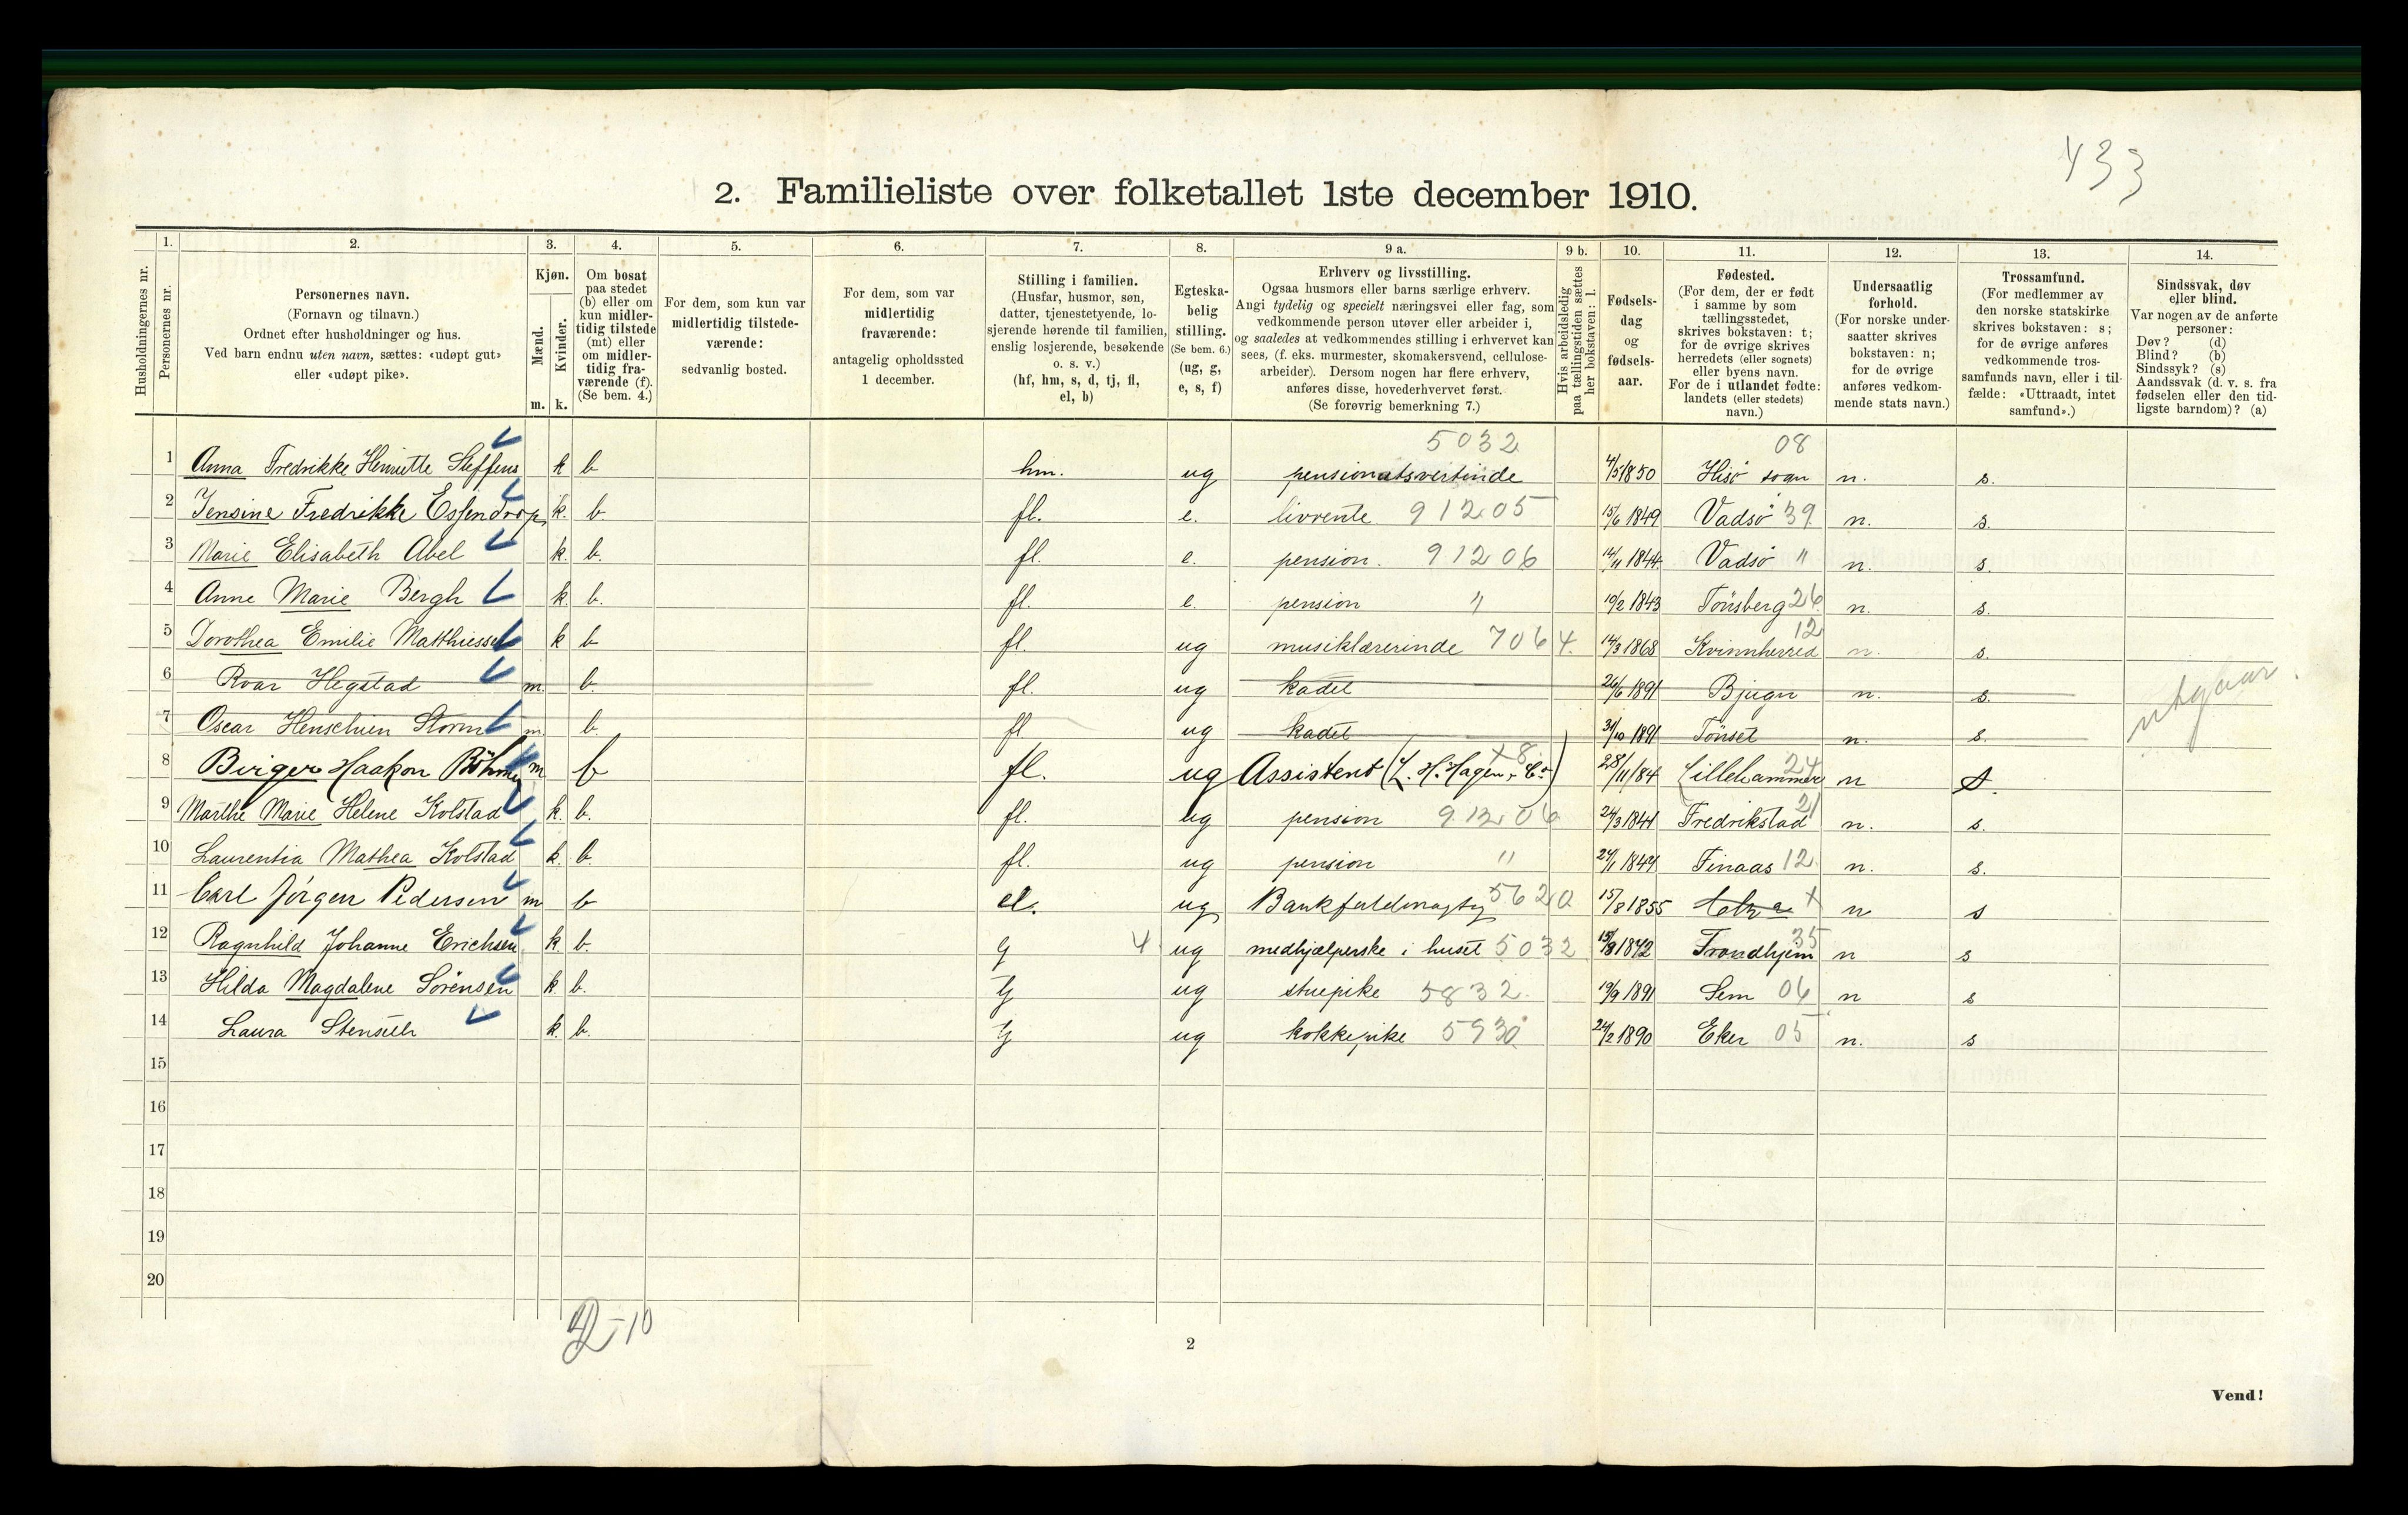 433
2. Familieliste over folketallet 1ste december 1910.
Husholdningernes nr.
1. Personernes nr.
2. Personernes navn. (Fornavn og tilnavn.) Ordnet efter husholdninger og hus. Ved barn endnu uten navn, sættes: «udøpt gut» eller «udøpt pike».
3. Kjøn. Mænd. m. Kvinder. k.
4. Om bosat paa stedet (b) eller om kun midlertidig tilstede (mt) eller om midlertidig fraværende (f). (Se bem. 4.)
5. For dem, som kun var midlertidig tilstedeværende: sedvanlig bosted.
6. For dem, som var midlertidig fraværende: antagelig opholdssted 1 december.
7. Stilling i familien. (Husfar, husmor, søn, datter, tjenestetyende, losjerende hørende til familien, enslig losjerende, besøkende o. s. v.) (hf, hm, s, d, tj, fl, el, b)
8. Egteskabelig stilling. (Se bem. 6.) (ug, g, e, s, f)
9 a. Erhverv og livsstilling. Ogsaa husmors eller barns særlige erhverv. Angi tydelig og specielt næringsvei eller fag, som vedkommende person utøver eller arbeider i, og saaledes at vedkommendes stilling i erhvervet kan sees, (f. eks. murmester, skomakersvend, cellulosearbeider). Dersom nogen har flere erhverv, anføres disse, hovederhvervet først. (Se forøvrig bemerkning 7.)
9 b. Hvis arbeidsledig paa tællingstiden sættes her bokstaven: l.
10. Fødselsdag og fødselsaar.
11. Fødested. (For dem, der er født i samme by som tællingsstedet, skrives bokstaven: t; for de øvrige skrives herredets (eller sognets) eller byens navn. For de i utlandet fødte: landets (eller stedets) navn.)
12. Undersaatlig forhold. (For norske undersaatter skrives bokstaven: n; for de øvrige anføres vedkommende stats navn.)
13. Trossamfund. (For medlemmer av den norske statskirke skrives bokstaven: s; for de øvrige anføres vedkommende trossamfunds navn, eller i tilfælde: «Uttraadt, intet samfund».)
14. Sindssvak, døv eller blind. Var nogen av de anførte personer: Døv? (d) Blind? (b) Sindssyk? (s) Aandssvak (d. v. s. fra fødselen eller den tidligste barndom)? (a)
5032 08
1 Anna Fredrikke Henriette Steffens k b hm. ug pensionatsvertinde 4/5 1850 Hisö sogn n. s.
2 Jensine Fredrikke Essendrop k. b. fl. e. livrente 91205 15/6 1849 Vadsö 39 n. s.
3 Marie Elisabeth Abel k. b. fl. e. pension. 91206 14/11 1844 Vadsö " n. s.
4 Anne Marie Bergh k. b. fl. e. pension " 19/2 1843 Tönsberg 26 n. s.
5 Dorothea Emilie Matthiessen k b fl. ug musiklærerinde 7064. 14/3 1868 Kvinnherred 12 n. s.
6 Roar Hegstad m. b. fl. ug kadet 26/6 1891 Bjugn n. s. utgaar.
7 Oscar Henschien Storm m. b. fl ug kadet 31/10 1891 Tönset n. s.
8 Birger Haakon Böhmer m b fl. ug Assistent (L. H. Hagen & Co) +8 28/11/84 Lillehammer 24 n s.
9 Marthe Marie Helene Kolstad k. b. fl. ug pension 91206 24/3 1841 Fredrikstad 21 n. s.
10 Laurentia Mathea Kolstad k. b. fl. ug pension " 24/1 1844 Finaas 12. n. s.
11 Carl Jörgen Pedersen m b el. ug Bankfuldmægtig 5620 15/8 1855 + n s
12 Ragnhild Johanne Erichsen k b. 4 ug medhjælperske i huset 5032 15/8 1842 Trondhjem 35 n s
13 Hilda Magdalene Sörensen k. b. tj ug stuepike 5832. 19/9 1891 Sem 06 n s
14 Laura Stenseth k. b. tj ug kokkepike 5930 24/2 1890 Eker 05 n. s
15
16
17
18
19
20
2-10
2
Vend!